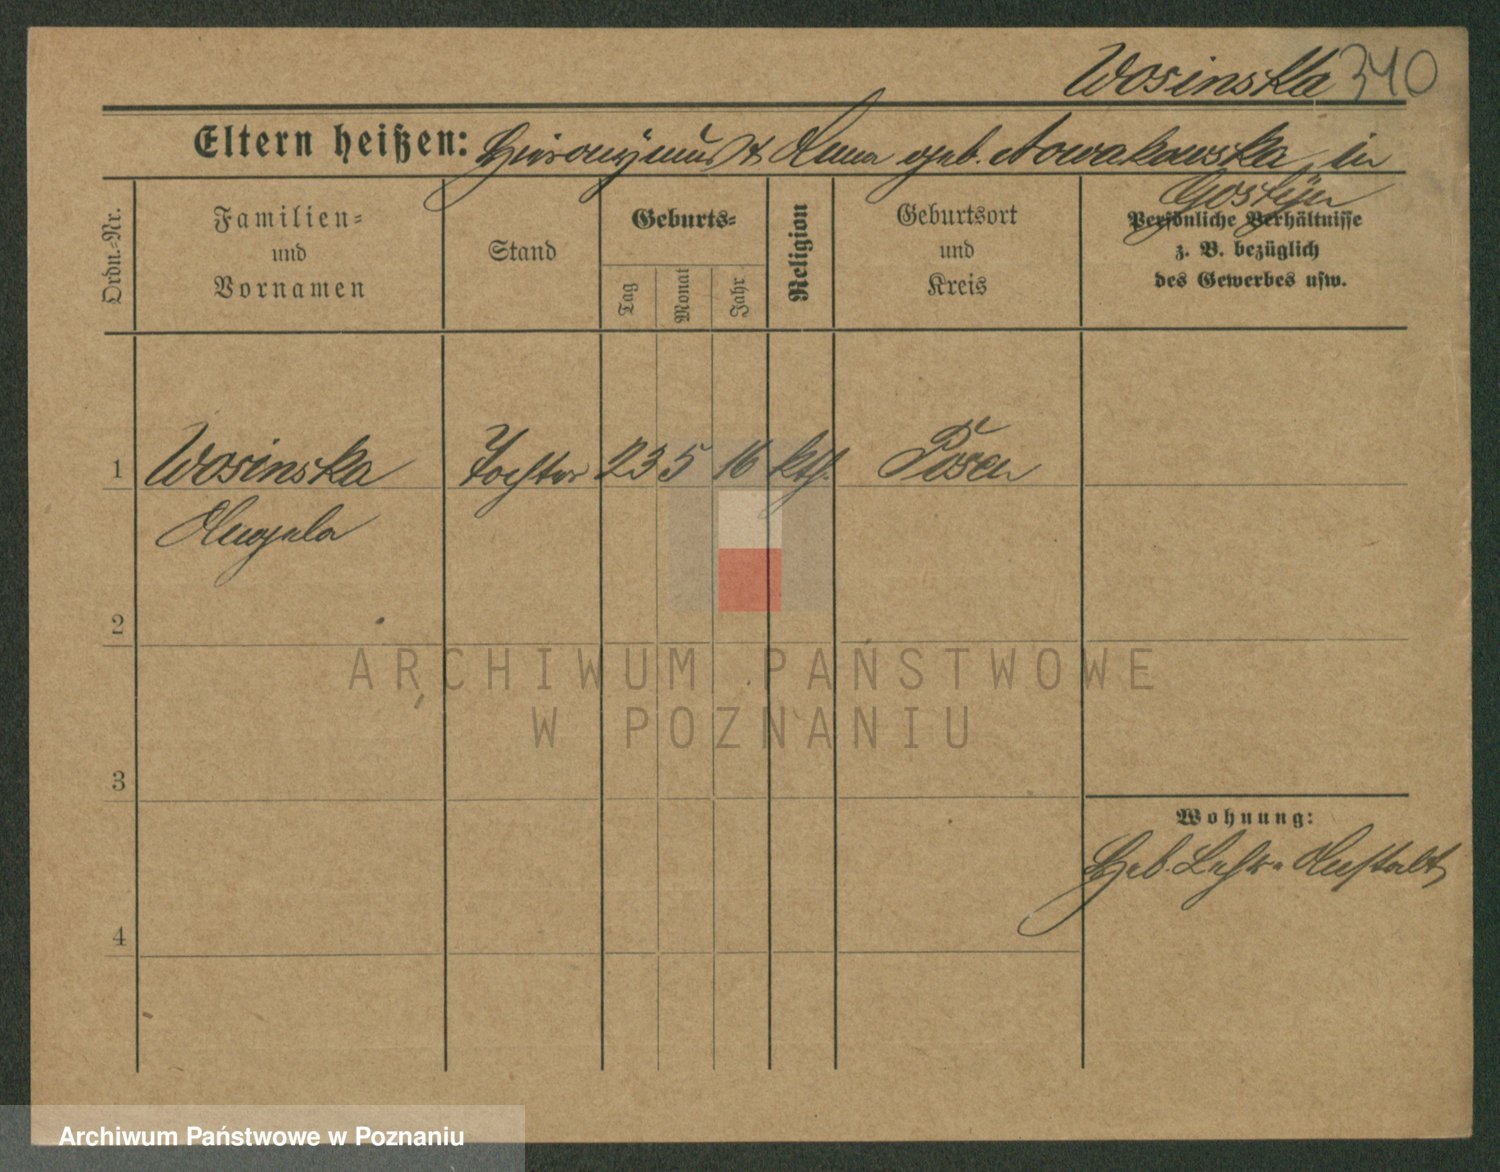 Wosinska 310
Eltern heißen: Hieronymus & Anna geb. Nowakowska, in
Gostyn
Ordn.-Nr.
Familien-
und
Vornamen
Stand
Geburts-
Tag
Monat
Jahr
Religion
Geburtsort
und
Kreis
Persönliche Verhältnisse
z. B. bezüglich
des Gewerbes usw.
1 Wosinska Tochter 23 5 16 kth. Posen
Angela
2
ARCHIWUM PAŃSTWOWE
W POZNANIU
3
Wohnung:
Heb. Lehr-Anstalt
4
Archiwum Państwowe w Poznaniu